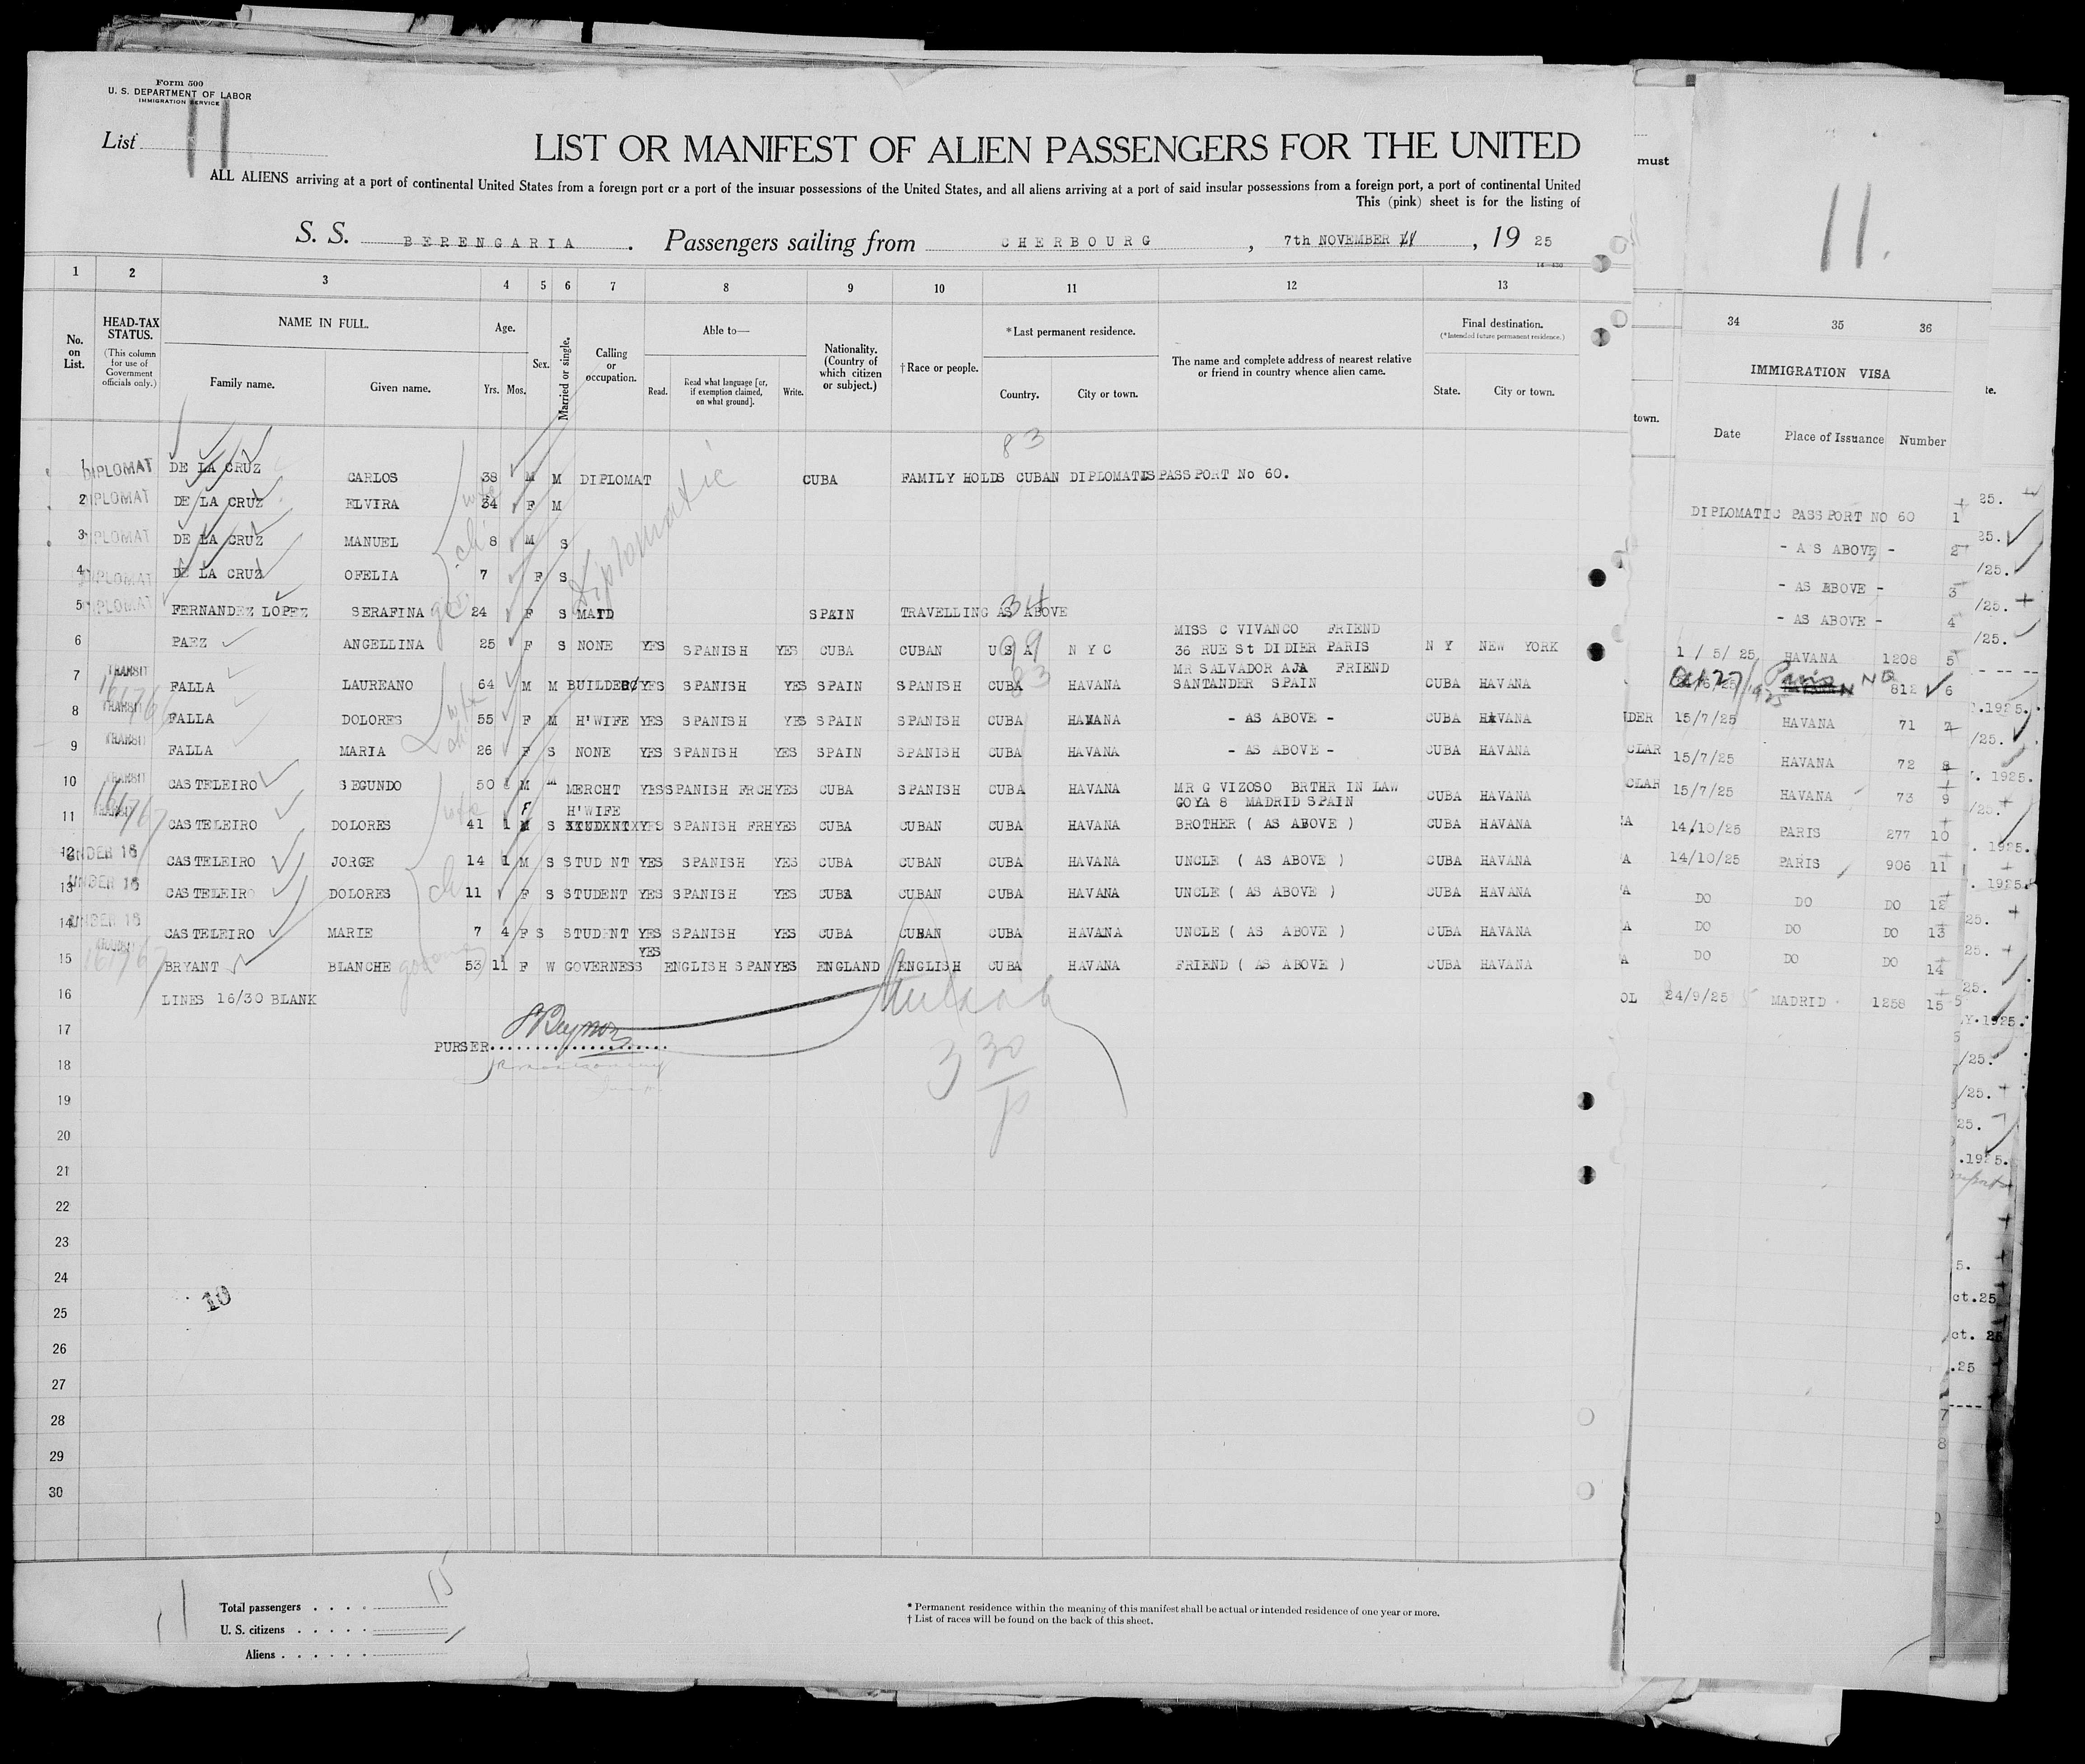 Form 500
U. S. DEPARTMENT OF LABOR
IMMIGRATION SERVICE
List 11
LIST OR MANIFEST OF ALIEN PASSENGERS FOR THE UNITED
ALL ALIENS arriving at a port of continental United States from a foreign port or a port of the insular possessions of the United States, and all aliens arriving at a port of said insular possessions from a foreign port, a port of continental United
This (pink) sheet is for the listing of
S. S. BERENGARIA . Passengers sailing from CHERBOURG , 7th NOVEMBER , 19 25
1 2 3 4 5 6 7 8 9 10 11 12 13
No. on List.
HEAD-TAX STATUS.
(This column for use of Government officials only.)
NAME IN FULL.
Family name. Given name.
Age.
Yrs. Mos.
Sex.
Married or single.
Calling or occupation.
Able to—
Read. Read what language [or, if exemption claimed, on what ground]. Write.
Nationality. (Country of which citizen or subject.)
†Race or people.
*Last permanent residence.
Country. City or town.
The name and complete address of nearest relative or friend in country whence alien came.
Final destination.
(*Intended future permanent residence.)
State. City or town.
83
1 DIPLOMAT DE LA CRUZ CARLOS 38 M M DIPLOMAT CUBA FAMILY HOLDS CUBAN DIPLOMATIS PASSPORT No 60.
2 DIPLOMAT DE LA CRUZ ELVIRA 34 F M
3 DIPLOMAT DE LA CRUZ MANUEL 8 M S
4 DIPLOMAT DE LA CRUZ OFELIA 7 F S
Diplomatic
5 DIPLOMAT FERNANDEZ LOPEZ SERAFINA 24 F S MAID SPAIN TRAVELLING AS ABOVE
34
MISS C VIVANCO FRIEND
6 PAEZ ANGELLINA 25 F S NONE YES SPANISH YES CUBA CUBAN U S A N Y C 36 RUE St DIDIER PARIS N Y NEW YORK
99
MR SALVADOR AJA FRIEND
7 TRANSIT FALLA LAUREANO 64 M M BUILDER YES SPANISH YES SPAIN SPANISH CUBA HAVANA SANTANDER SPAIN CUBA HAVANA
83
8 TRANSIT FALLA DOLORES 55 F M H'WIFE YES SPANISH YES SPAIN SPANISH CUBA HAVANA - AS ABOVE - CUBA HAVANA
9 TRANSIT FALLA MARIA 26 F S NONE YES SPANISH YES SPAIN SPANISH CUBA HAVANA - AS ABOVE - CUBA HAVANA
10 TRANSIT CASTELEIRO SEGUNDO 50 M M MERCHT YES SPANISH FRCH YES CUBA SPANISH CUBA HAVANA MR G VIZOSO BRTHR IN LAW
GOYA 8 MADRID SPAIN CUBA HAVANA
H'WIFE
11 TRANSIT CASTELEIRO DOLORES 41 1 F S YES SPANISH FRH YES CUBA CUBAN CUBA HAVANA BROTHER ( AS ABOVE ) CUBA HAVANA
12 UNDER 16 CASTELEIRO JORGE 14 1 M S STUD NT YES SPANISH YES CUBA CUBAN CUBA HAVANA UNCLE ( AS ABOVE ) CUBA HAVANA
13 UNDER 16 CASTELEIRO DOLORES 11 F S STUDENT YES SPANISH YES CUBA CUBAN CUBA HAVANA UNCLE ( AS ABOVE ) CUBA HAVANA
14 UNDER 16 CASTELEIRO MARIE 7 4 F S STUDENT YES SPANISH YES CUBA CUBAN CUBA HAVANA UNCLE ( AS ABOVE ) CUBA HAVANA
15 TRANSIT BRYANT BLANCHE 53 11 F W GOVERNESS YES ENGLISH SPAN YES ENGLAND ENGLISH CUBA HAVANA FRIEND ( AS ABOVE ) CUBA HAVANA
16 LINES 16/30 BLANK
17
PURSER
18
19
20
21
22
23
24
25
26
27
28
29
30
10
Total passengers 15
U. S. citizens
Aliens
11
* Permanent residence within the meaning of this manifest shall be actual or intended residence of one year or more.
† List of races will be found on the back of this sheet.
must
11.
34 35 36
IMMIGRATION VISA
town.
Date Place of Issuance Number
DIPLOMATIC PASSPORT NO 60 1
- AS ABOVE - 2
- AS ABOVE - 3
- AS ABOVE - 4
1/5/25 HAVANA 1208 5
Oct 27/1925 Paris NQ 812 6
15/7/25 HAVANA 71 7
15/7/25 HAVANA 72 8
15/7/25 HAVANA 73 9
14/10/25 PARIS 277 10
14/10/25 PARIS 906 11
DO DO DO 12
DO DO DO 13
DO DO DO 14
24/9/25 MADRID 1258 15